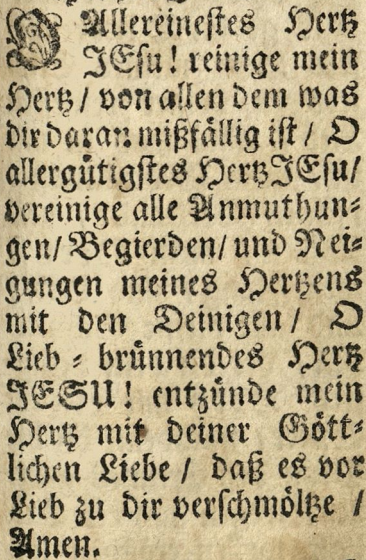 O Allereinestes Hertz
JEsu! reinige mein
Hertz / von allen dem was
dir daran mißfällig ist / O
allergütigstes Hertz JEsu/
vereinige alle Anmuthun⸗
gen/ Begierden/ und Nei⸗
gungen meines Hertzens
mit den Deinigen / O
Lieb ⸗ brünnendes Hertz
JESU! entzünde mein
Hertz mit deiner Gött⸗
lichen Liebe / daß es vor
Lieb zu dir verschmöltze /
Amen.